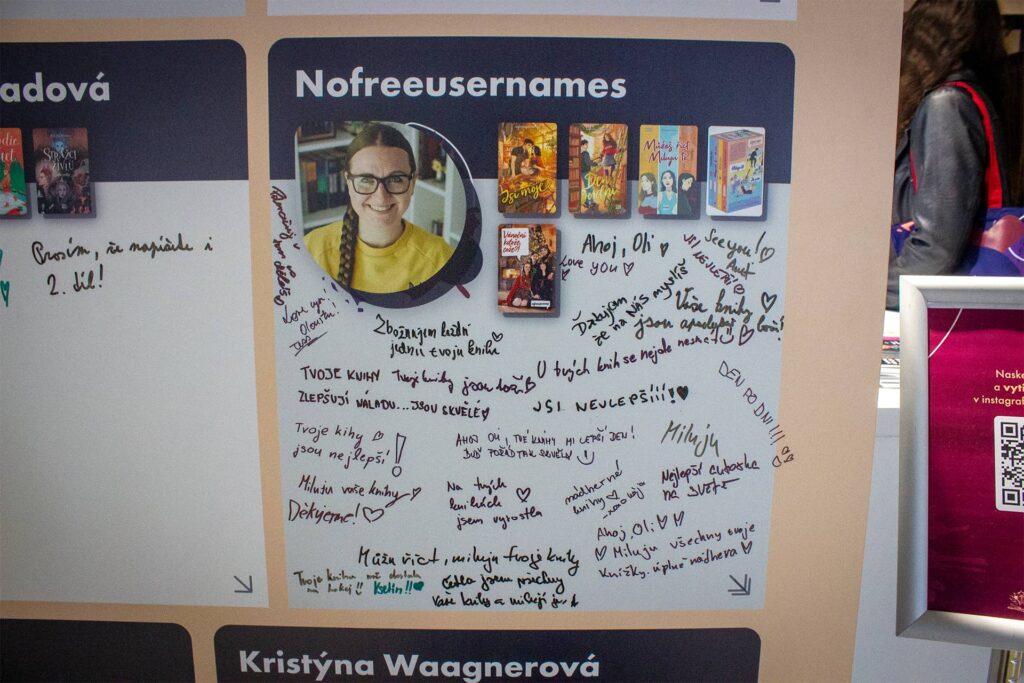 adová
Prosím, že napíšete i
2. díl!
Nofreeusernames
Jsi moje
Můžeš říct
Miluju tě
Ahoj, Oli
Love you
See you!
JSI
NEJLEPŠÍ!
Ďakujem
že na NÁS myslíš
Vaše knihy
jsou
Love you
Zbožňujem každú
jednu tvoju knihu
U tvých knih se nejde nesmát
TVOJE KNIHY
ZLEPŠUJÍ NÁLADU...JSOU SKVĚLÉ
Tvoje knihy jsou boží
JSI NEJLEPŠÍÍÍ!
DEN PO DNI!!!
Tvoje kihy
jsou nejlepší!
AHOJ OLI, TVÉ KNIHY MI LEPŠÍ DEN!
BUĎ POŘÁD TAK SKVĚLÁ
Miluju
Nejlepší autorka
na světě
Miluju vaše knihy
Děkujeme!
Na tvých
knihách
jsem vyrostla
nádherné
knihy
Ahoj, Oli
Miluju všechny tvoje
knížky. Úplně nádhera
Můžu říct, miluju tvoje knihy
Tvoje kniha mě dostala
na hokej!!
četla jsem všechny
vaše knihy a miluji je
Kristýna Waagnerová
Naske
a vyti
v instagra